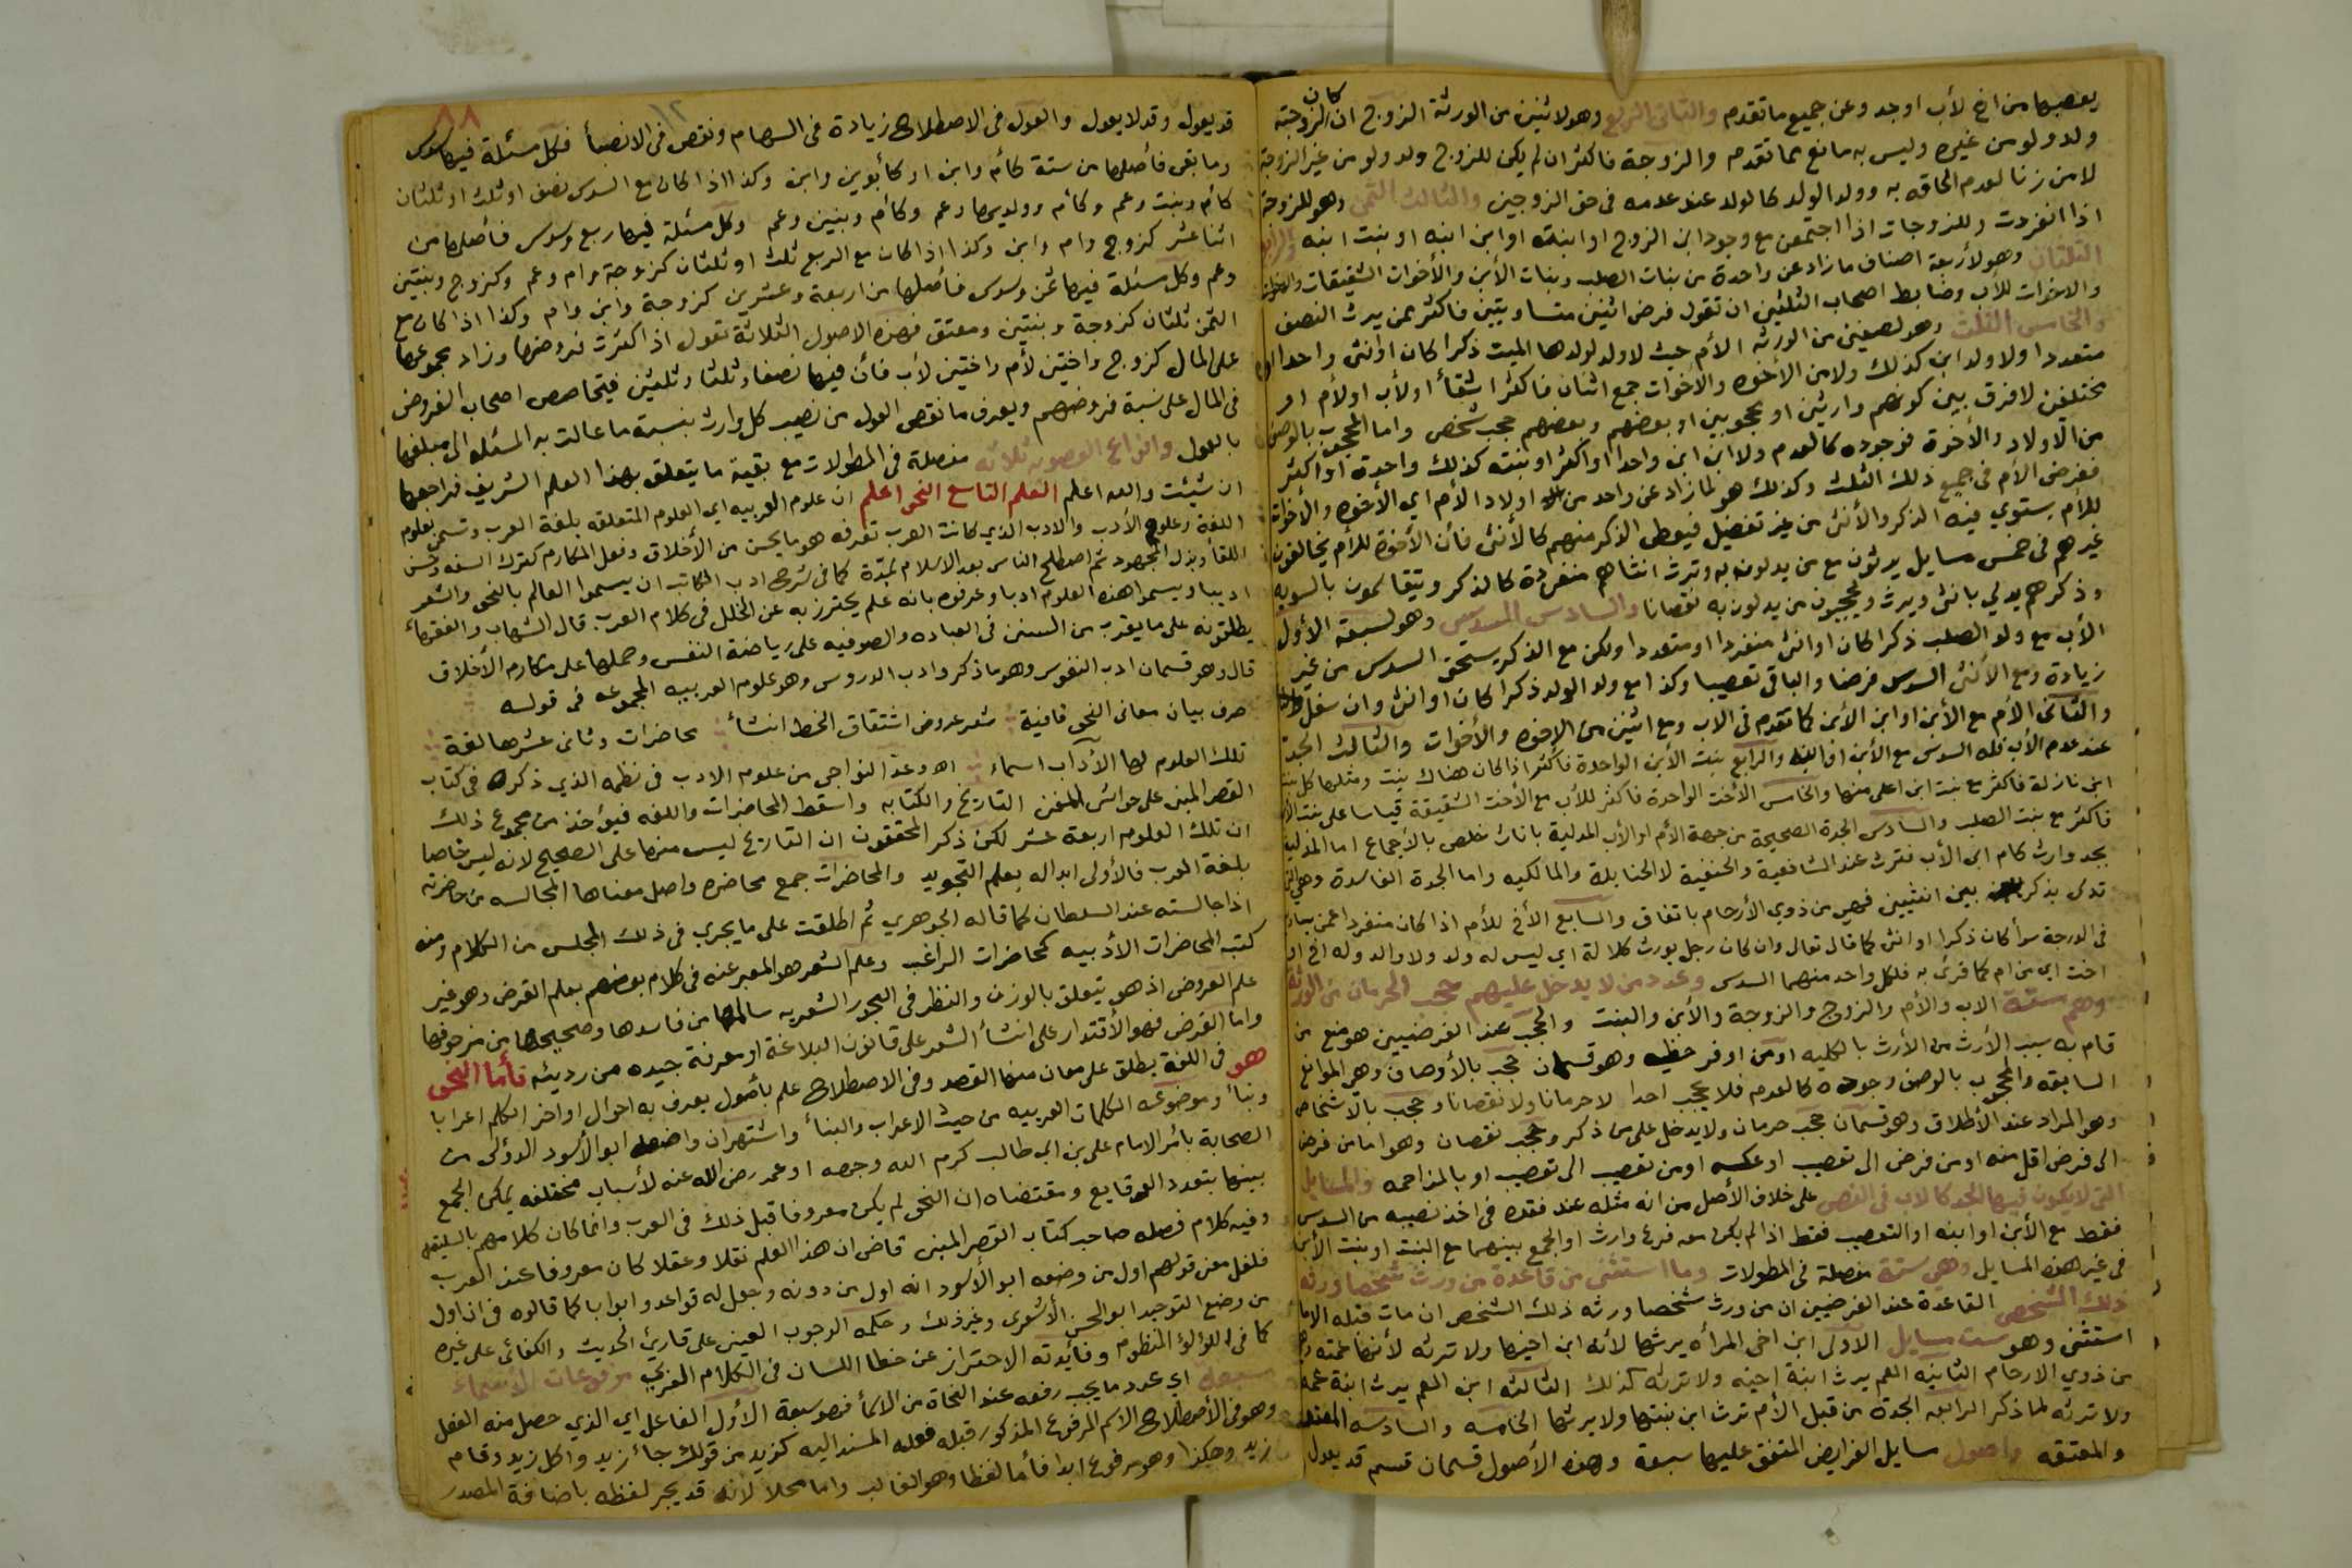 يعصبها من اخ لأب او جد وعن جميع ما تقدم والثانى الربع وهو لاثنين من الورثة الزوج ان كان لزوجته
ولد ولو من غيره وليس به مانع مما تقدم والزوجة فاكثر ان لم يكن للزوج ولد ولو من غير الزوجة
لا من زنا لعدم الحاقه به وولد الولد كالولد عند عدمه فى حق الزوجين والثالث الثمن وهو للزوجة
اذا انفردت وللزوجات اذا اجتمعن مع وجود ابن الزوج او ابنته او ابن ابنه او بنت ابنه والرابع
الثلثان وهو لأربعة اصناف ما زاد عن واحدة من بنات الصلب وبنات الأبن والأخوات الشقيقات
والاخوات للأب وضابط اصحاب الثلثين ان تقول فرض اثنين متساويتين فاكثر ممن يرث النصف
والخامس الثلث وهو لصنفين من الورثه الأم حيث لا ولد لولدها الميت ذكرا كان او انثى واحدا او
متعددا ولا ولد ابن كذلك ولا من الأخوه والاخوات جمع اثنان فاكثر اشقأ او لأب او لأم او
مختلفين لا فرق بين كونهم وارثين او محجوبين او بعضهم وبعضهم حجب شخص واما المحجوب بالوصف
من الأولاد والأخوة فوجوده كالعدم ولا ابن ابن واحدا او اكثر او بنته كذلك واحدة او اكثر
ففرض الأم فى جميع ذلك الثلث وكذلك هو لما زاد عن واحد من اولاد الأم اي الأخوه والأخوات
للأم يستوي فيه الذكر والأنثى من غير تفضيل فيعطى الذكر منهم كالأنثى فأن الأخوة للأم يخالفون
غيرهم فى خمس مسايل يرثون مع من يدلون به وترث انثاهم منفردة كالذكر ويتقاسمون بالسويه
وذكرهم يدلي بانثى ويرث ويحجبون من يدلون به نقصانا والسادس السدس وهو لسبعة الأول
الأب مع ولد الصلب ذكرا كان او انثى منفردا او متعددا ولكن مع الذكر يستحق السدس من غير
زيادة ومع الأنثى السدس فرضا والباقى تعصيبا وكذا مع ولد الولد ذكرا كان او انثى وان سفل
والثانى الأم مع الأبن او ابن الأبن كما تقدم فى الاب ومع اثنين من الاخوه والأخوات والثالث الجد
عند عدم الأب فله السدس مع الأبن او ابنه والرابع بنت الأبن الواحدة فاكثر اذا كان هناك بنت ومثلها كل بنت
ابن نازلة فاكثر مع بنت ابن اعلى منها والخامس الأخت الواحدة فاكثر للأب مع الأخت الشقيقة قياسا على بنت الأبن
فاكثر مع بنت الصلب والسادس الجدة الصحيحة من جهة الأم او الأب المدلية باناث خلص بالأجماع اما المدلية
بجد وارث كام ابى الأب فترث عند الشافعية والحنفية لا الحنابلة والمالكيه واما الجدة الفاسدة وهى التى
تدلى بذكر بين انثيين فهى من ذوي الأرحام باتفاق والسابع الأخ للأم اذا كان منفردا عمن
فى الدرجة سوأ كان ذكرا او انثى كما قال تعالى وان كان رجل يورث كلالة اي ليس له ولد ولا والد وله اخ او
اخت اي من ام كما قرئ به فلكل واحد منهما السدس وعدد من لا يدخل عليهم حجب الحرمان من الورثة
وهم ستة الاب والأم والزوج والزوجة والأبن والبنت والحجب عند الفرضيين هو منع من
قام به سبب الأرث من الأرث بالكليه او من اوفر حظيه وهو قسمان حجب بالأوصاف وهى الموانع
السابقه والمحجوب بالوصف وجوده كالعدم فلا يحجب احدا لا حرمانا ولا نقصانا وحجب بالأشخاص
وهو المراد عند الأطلاق وهو قسمان حجب حرمان ولا يدخل على من ذكر وحجب نقصان وهو اما من فرض
الى فرض اقل منه او من فرض الى تعصيب او عكسه او من تعصيب الى تعصيب او بالمزاحمه والمسايل
التى لا يكون فيها الجد كالاب فى النص على خلاف الأصل من انه مثله عند فقده فى اخذ نصيبه من السدس
فقط مع الأبن او ابنه او التعصيب فقط اذا لم يكن معه فرع وارث او الجمع بينهما مع البنت او بنت الأبن
فى غير هذه المسايل وهى ستة مفصلة فى المطولات وما استثنى من قاعدة من ورث شخصا ورثه
ذلك الشخص القاعدة عند الفرضيين ان من ورث شخصا ورثه ذلك الشخص ان مات قبله الا ما
استثنى وهو ست مسايل الاولى ابن اخى المرأه يرثها لأنه ابن اخيها ولا ترثه لأنها عمته وهى
من ذوي الارحام الثانيه العم يرث ابنة اخيه ولا ترثه كذلك الثالثه ابن العم يرث ابنة عمه
ولا ترثه لما ذكر الرابعه الجدة من قبل الأم ترث ابن بنتها ولا يرثها الخامسه والسادسه المعتق
والمعتقه واصول مسايل الفرايض المتفق عليها سبعة وهذه الأصول قسمان قسم قد يعول
٨٨
١٢
قد يعول وقد لا يعول والعول فى الاصطلاح زيادة فى السهام ونقص فى الانصبأ فكل مسئلة فيها سدس
وما بقى فأصلها من ستة كأم وابن او كأبوين وابن وكذا اذا كان مع السدس نصف او ثلث او ثلثان
كأم وبنت وعم وكأم وولديها وعم وكأم وبنتين وعم وكل مسئلة فيها ربع وسدس فأصلها من
اثنا عشر كزوج وام وابن وكذا اذا كان مع الربع ثلث او ثلثان كزوجة وام وعم وكزوج وبنتين
وعم وكل مسئلة فيها ثمن وسدس فأصلها من اربعة وعشرين كزوجة وابن وام وكذا اذا كان مع
الثمن ثلثان كزوجة وبنتين ومعتق فهذه الاصول الثلاثة تعول اذا كثرت فروضها وزاد مجموعها
على المال كزوج واختين لأم واختين لأب فأن فيها نصفا وثلثا وثلثين فيتحاصص اصحاب الفروض
فى المال على نسبة فروضهم ويعرف ما نقص العول من نصيب كل وارث بنسبة ما عالت به المسئله الى مبلغها
بالعول وانواع العصوبه ثلاثه مفصلة فى المطولات مع بقية ما يتعلق بهذا العلم الشريف فراجعها
ان شيئت والله اعلم العلم التاسع النحو اعلم ان علوم العربيه اي العلوم المتعلقه بلغة العرب وتسمى بعلوم
اللغة وعلوم الأدب والادب الذي كانت العرب تعرفه هو ما يحسن من الأخلاق وفعل المكارم كترك السفه وحسن
اللقأ وبذل المجهود ثم اصطلح الناس بعد الاسلام بمدة كما فى شرح ادب الكاتب ان يسموا العالم بالنحو والشعر
اديبا ويسموا هذه العلوم ادبا وعرفوه بانه علم يحترز به عن الخلل فى كلام العرب قال الشهاب والفقهأ
يطلقونه على ما يقرب من السنن فى العباده والصوفيه على رياضة النفس وحملها على مكارم الأخلاق
قال وهو قسمان ادب النفوس وهو ما ذكر وادب الدروس وهو علوم العربيه المجموعه فى قوله
صرف بيان معانى النحو قافية شعر عروض اشتقاق الخط انشأ محاضرات وثانى عشرها لغة
تلك العلوم لها الأداب اسماء اه وعد النواجى من علوم الادب فى نظمه الذي ذكره فى كتاب
القصر المبنى على حواشى المغنى التاريخ والكتابه واسقط المحاضرات واللغه فيؤخذ من مجموع ذلك
ان تلك العلوم اربعة عشر لكن ذكر المحققون ان التاريخ ليس منها على الصحيح لانه ليس خاصا
بلغة العرب فالأولى ابداله بعلم التجويد والمحاضرات جمع محاضره واصل معناها المجالسه من حاضرته
اذا جالسته عند السلطان كما قاله الجوهري ثم اطلقت على ما يجري فى ذلك المجلس من الكلام ومنه
كتب المحاضرات الأدبيه كمحاضرات الراغب وعلم الشعر هو المعبر عنه فى كلام بعضهم بعلم القرض وهو غير
علم العروض اذ هو يتعلق بالوزن والنظر فى البحور الشعريه سالمها من فاسدها وصحيحها من مزحوفها
واما القرض فهو الأقتدار على انشأ الشعر على قانون البلاغة او معرفة جيده من رديئه فأما النحو
هو فى اللغة يطلق على معان منها القصد وفى الاصطلاح علم بأصول يعرف به احوال اواخر الكلم اعرابا
وبنأ وموضوعه الكلمات العربيه من حيث الاعراب والبنأ واشتهر ان واضعه ابو الأسود الدؤلى من
الصحابة بأمر الامام على بن ابى طالب كرم الله وجهه او عمر رضى الله عنه لأسباب مختلفه يمكن الجمع
بينها بتعدد الوقايع ومقتضاه ان النحو لم يكن معروفا قبل ذلك فى العرب وانما كان كلامهم بالسليقه
وفيه كلام فصله صاحب كتاب القصر المبنى قاض ان هذا العلم نقلا وعقلا كان معروفا عند العرب
فلعل معنى قولهم اول من وضعه ابو الأسود انه اول من دونه وجعل له قواعد وابوابا كما قالوه فى ان اول
من وضع التوحيد ابو الحسن الأشعرى وغير ذلك وحكمه الوجوب العينى على قارئ الحديث والكفائى على غيره
كما فى اللؤلؤ المنظوم وفأيدته الاحتراز عن خطا اللسان فى الكلام العربى مرفوعات الأسماء
سبعة اي عدد ما يجب رفعه عند النحاة من الاسمأ فهو سبعة الأول الفاعل اي الذي حصل منه الفعل
وهو فى الأصطلاح الاسم المرفوع المذكور قبله فعله المسند اليه كزيد من قولك جأ زيد واكل زيد وقام
زيد وهكذا وهو مرفوع ابدا فأما لفظا وهو الغالب واما محلا لأنه قد يجر لفظه باضافة المصدر